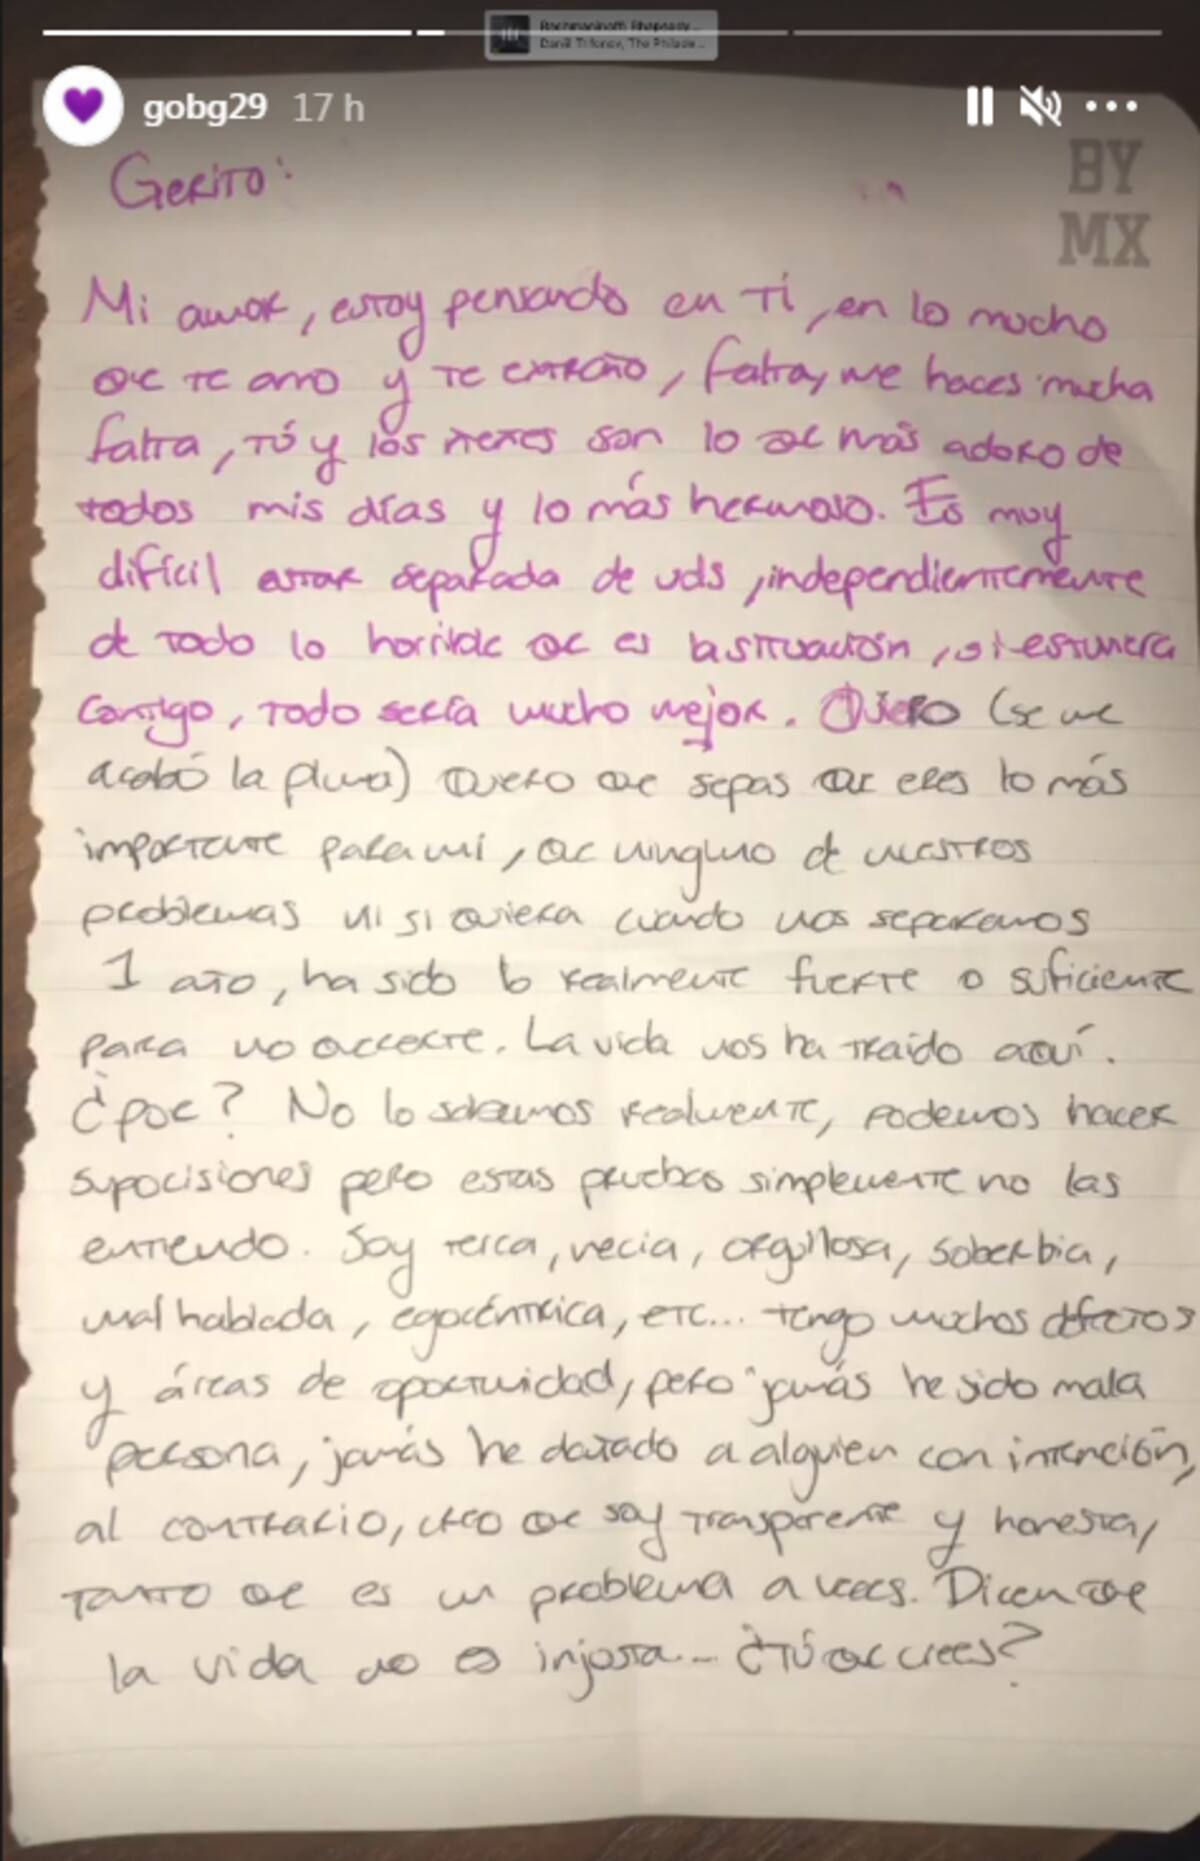 Rachmaninoff: Rhapsody ...
Daniil Trifonov, The Philade...
gobg29 17 h
BY
MX
Gerito:
Mi amor, estoy pensando en Ti, en lo mucho
qe te amo y te extraño, falta, me haces mucha
falta, tú y los nenes son lo qe más adoro de
todos mis días y lo más hermoso. Es muy
difícil estar separada de uds, independientemente
de todo lo horrible qe es la situación, si estuviera
contigo, todo sería mucho mejor. Quiero (se me
acabó la pluma) Quiero qe sepas qe eres lo más
importante para mí, qe ninguno de nuestros
problemas ni si quiera cuando nos separamos
1 año, ha sido lo realmente fuerte o suficiente
para no qererte. La vida nos ha traído aquí.
¿por? No lo sabemos realmente, podemos hacer
supocisiones pero estas pruebas simplemente no las
entiendo. Soy terca, necia, orgullosa, soberbia,
mal hablada, egocéntrica, etc... tengo muchos defectos
y áreas de oportunidad, pero jamás he sido mala
persona, jamás he dañado a alguien con intención,
al contrario, creo qe soy transparente y honesta,
tanto qe es un problema a veces. Dicen qe
la vida no es injusta... ¿Tú qe crees?